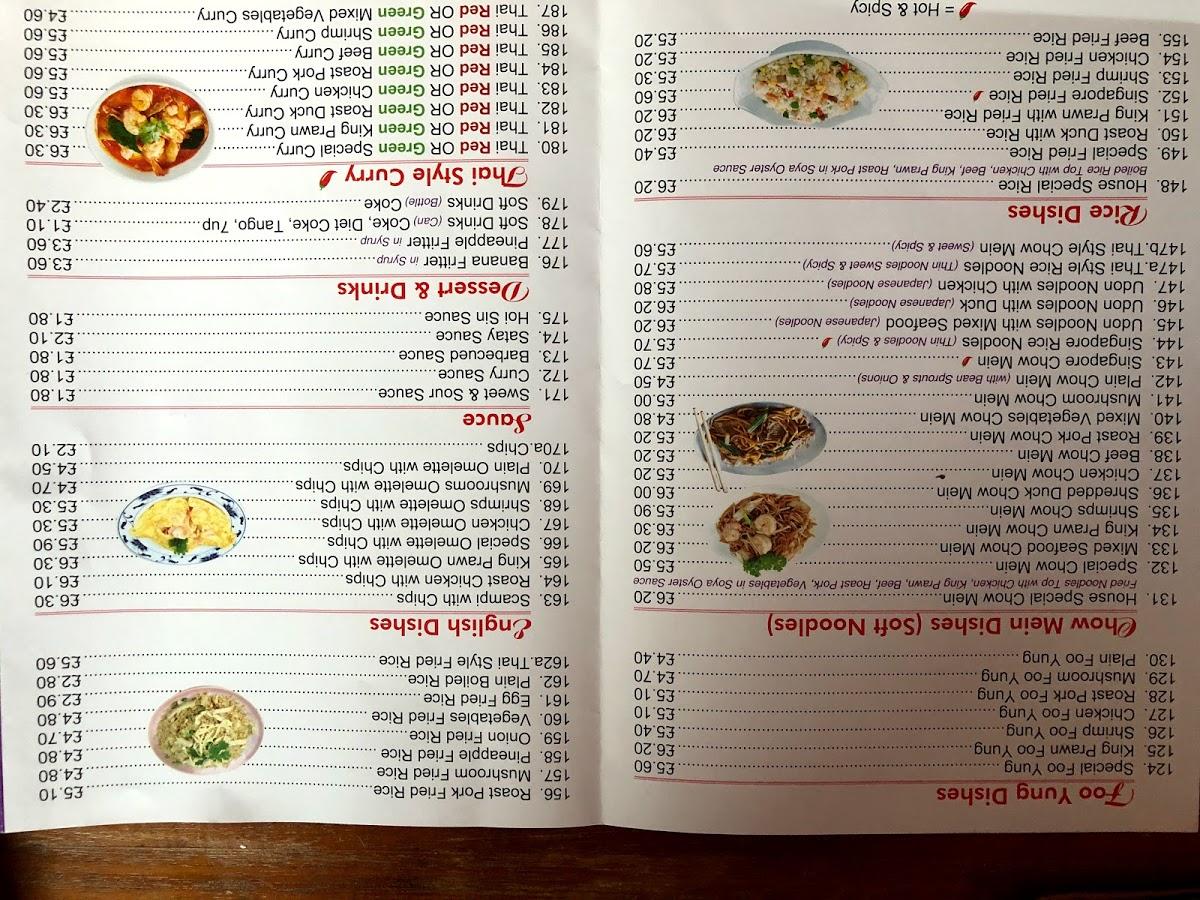 Foo Yung Dishes
124. Special Foo Yung £5.60
125. King Prawn Foo Yung £6.20
126. Shrimp Foo Yung £5.40
127. Chicken Foo Yung £5.10
128. Roast Pork Foo Yung £5.10
129. Mushroom Foo Yung £4.70
130. Plain Foo Yung £4.40
Chow Mein Dishes (Soft Noodles)
131. House Special Chow Mein £6.20
Fried Noodles Top with Chicken, King Prawn, Beef, Roast Pork, Vegetables in Soya Oyster Sauce
132. Special Chow Mein £5.50
133. Mixed Seafood Chow Mein £6.20
134. King Prawn Chow Mein £6.30
135. Shrimps Chow Mein £5.90
136. Shredded Duck Chow Mein £6.00
137. Chicken Chow Mein £5.20
138. Beef Chow Mein £5.20
139. Roast Pork Chow Mein £5.20
140. Mixed Vegetables Chow Mein £4.80
141. Mushroom Chow Mein £5.00
142. Plain Chow Mein (with Bean Sprouts & Onions) £4.50
143. Singapore Chow Mein £5.70
144. Singapore Rice Noodles (Thin Noodles & Spicy) £5.70
145. Udon Noodles with Mixed Seafood (Japanese Noodles) £6.20
146. Udon Noodles with Duck (Japanese Noodles) £6.20
147. Udon Noodles with Chicken (Japanese Noodles) £5.80
147a. Thai Style Rice Noodles (Thin Noodles Sweet & Spicy) £5.70
147b. Thai Style Chow Mein (Sweet & Spicy) £5.60
Rice Dishes
148. House Special Rice £6.20
Boiled Rice Top with Chicken, Beef, King Prawn, Roast Pork in Soya Oyster Sauce
149. Special Fried Rice £5.40
150. Roast Duck with Rice £6.20
151. King Prawn with Fried Rice £6.20
152. Singapore Fried Rice £5.60
153. Shrimp Fried Rice £5.30
154. Chicken Fried Rice £5.20
155. Beef Fried Rice £5.20
= Hot & Spicy
156. Roast Pork Fried Rice £5.10
157. Mushroom Fried Rice £4.80
158. Pineapple Fried Rice £4.80
159. Onion Fried Rice £4.70
160. Vegetables Fried Rice £4.80
161. Egg Fried Rice £2.90
162. Plain Boiled Rice £2.80
162a. Thai Style Fried Rice £5.60
English Dishes
163. Scampi with Chips £6.30
164. Roast Chicken with Chips £6.10
165. King Prawn Omelette with Chips £6.30
166. Special Omelette with Chips £5.90
167. Chicken Omelette with Chips £5.30
168. Shrimps Omelette with Chips £5.30
169. Mushrooms Omelette with Chips £4.70
170. Plain Omelette with Chips £4.50
170a Chips £2.10
Sauce
171. Sweet & Sour Sauce £1.80
172. Curry Sauce £1.80
173. Barbecued Sauce £1.80
174. Satay Sauce £2.10
175. Hoi Sin Sauce £1.80
Dessert & Drinks
176. Banana Fritter in Syrup £3.60
177. Pineapple Fritter in Syrup £3.60
178. Soft Drinks (Can) Coke, Diet Coke, Tango, 7up £1.10
179. Soft Drinks (Bottle) Coke £2.40
Thai Style Curry
180. Thai Red OR Green Special Curry £6.30
181. Thai Red OR Green King Prawn Curry £6.30
182. Thai Red OR Green Roast Duck Curry £6.30
183. Thai Red OR Green Chicken Curry £5.60
184. Thai Red OR Green Roast Pork Curry £5.60
185. Thai Red OR Green Beef Curry £5.60
186. Thai Red OR Green Shrimp Curry £5.60
187. Thai Red OR Green Mixed Vegetables Curry £4.60